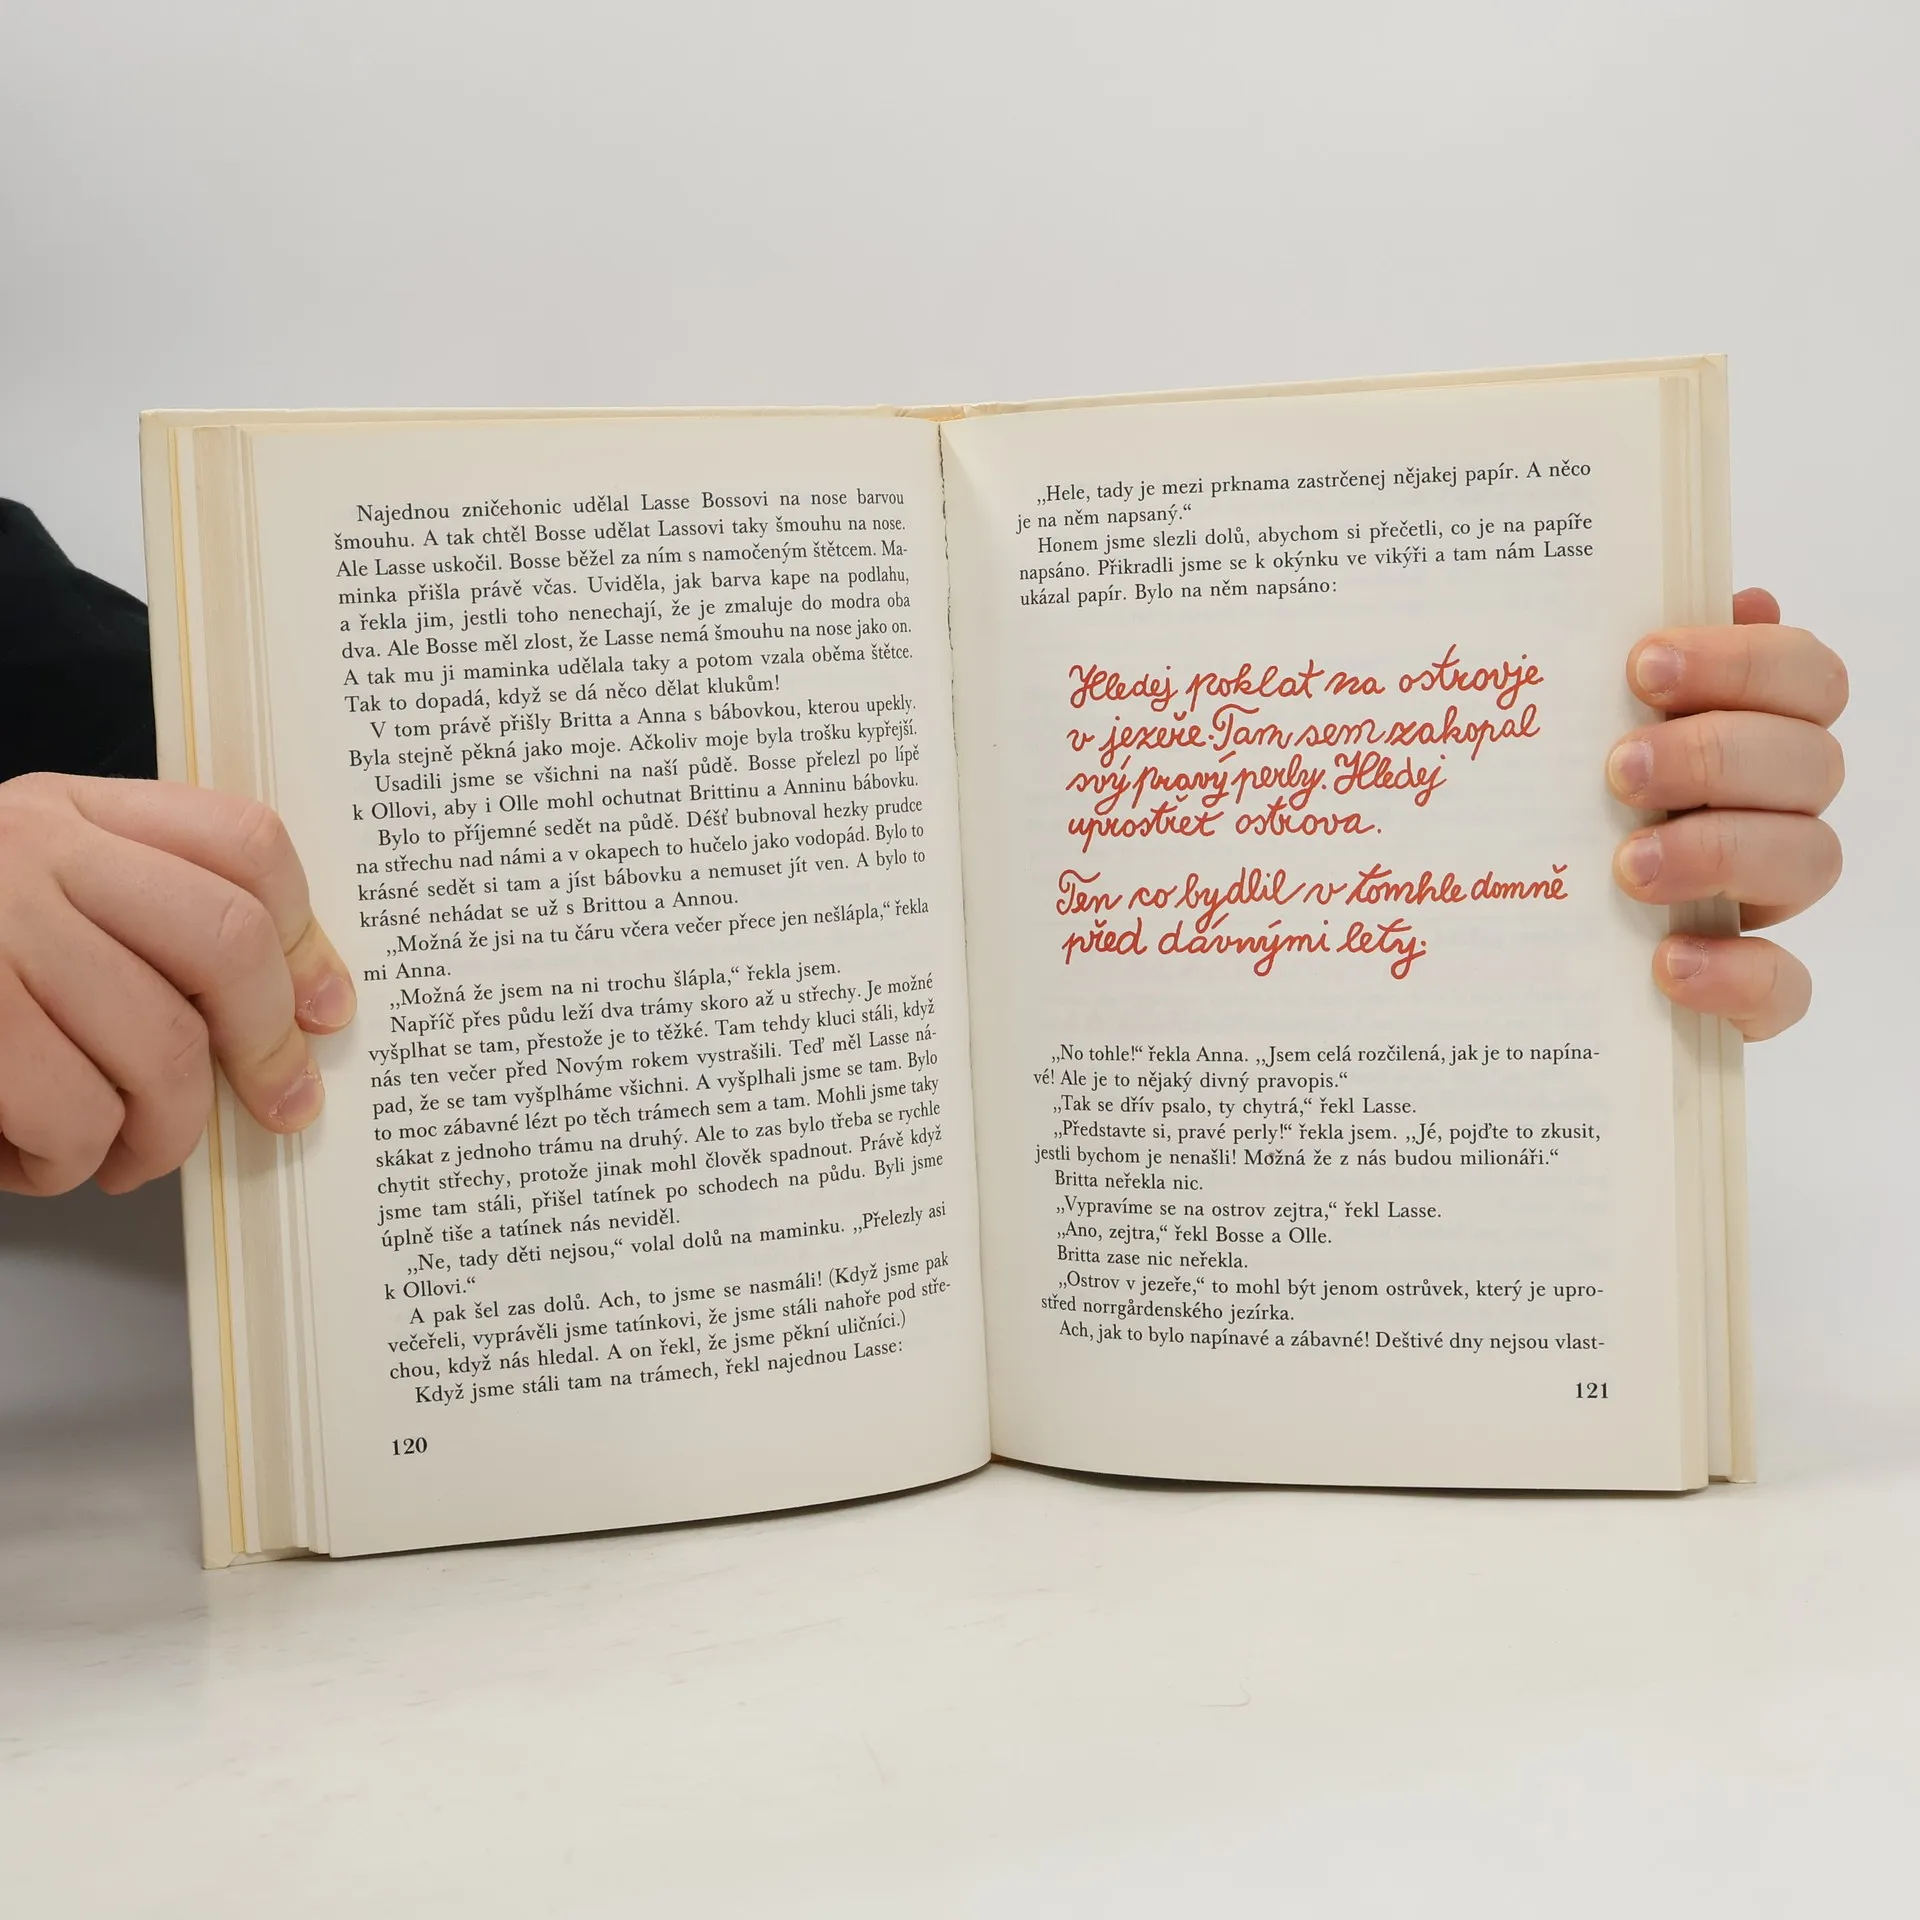 Najednou zničehonic udělal Lasse Bossovi na nose barvou
šmouhu. A tak chtěl Bosse udělat Lassovi taky šmouhu na nose.
Ale Lasse uskočil. Bosse běžel za ním s namočeným štětcem. Ma-
minka přišla právě včas. Uviděla, jak barva kape na podlahu,
a řekla jim, jestli toho nenechají, že je zmaluje do modra oba
dva. Ale Bosse měl zlost, že Lasse nemá šmouhu na nose jako on.
A tak mu ji maminka udělala taky a potom vzala oběma štětce.
Tak to dopadá, když se dá něco dělat klukům!
V tom právě přišly Britta a Anna s bábovkou, kterou upekly.
Byla stejně pěkná jako moje. Ačkoliv moje byla trošku kypřejší.
Usadili jsme se všichni na naší půdě. Bosse přelezl po lípě
k Ollovi, aby i Olle mohl ochutnat Brittinu a Anninu bábovku.
Bylo to příjemné sedět na půdě. Déšť bubnoval hezky prudce
na střechu nad námi a v okapech to hučelo jako vodopád. Bylo to
krásné sedět si tam a jíst bábovku a nemuset jít ven. A bylo to
krásné nehádat se už s Brittou a Annou.
„Možná že jsi na tu čáru včera večer přece jen nešlápla,“ řekla
mi Anna.
„Možná že jsem na ni trochu šlápla,“ řekla jsem.
Napříč přes půdu leží dva trámy skoro až u střechy. Je možné
vyšplhat se tam, přestože je to těžké. Tam tehdy kluci stáli, když
nás ten večer před Novým rokem vystrašili. Teď měl Lasse ná-
pad, že se tam vyšplháme všichni. A vyšplhali jsme se tam. Bylo
to moc zábavné lézt po těch trámech sem a tam. Mohli jsme taky
skákat z jednoho trámu na druhý. Ale to zas bylo třeba se rychle
chytit střechy, protože jinak mohl člověk spadnout. Právě když
jsme tam stáli, přišel tatínek po schodech na půdu. Byli jsme
úplně tiše a tatínek nás neviděl.
„Ne, tady děti nejsou,“ volal dolů na maminku. „Přelezly asi
k Ollovi.“
A pak šel zas dolů. Ach, to jsme se nasmáli! (Když jsme pak
večeřeli, vyprávěli jsme tatínkovi, že jsme stáli nahoře pod stře-
chou, když nás hledal. A on řekl, že jsme pěkní uličníci.)
Když jsme stáli tam na trámech, řekl najednou Lasse:
120
„Hele, tady je mezi prknama zastrčenej nějakej papír. A něco
je na něm napsaný.“
Honem jsme slezli dolů, abychom si přečetli, co je na papíře
napsáno. Přikradli jsme se k okýnku ve vikýři a tam nám Lasse
ukázal papír. Bylo na něm napsáno:
Hledej poklat na ostrovje
v jezeře. Tam sem zakopal
svý pravý perly. Hledej
uprostřet ostrova.
Ten co bydlil v tomhle domně
před dávnými lety.
„No tohle!“ řekla Anna. „Jsem celá rozčilená, jak je to napína-
vé! Ale je to nějaký divný pravopis.“
„Tak se dřív psalo, ty chytrá,“ řekl Lasse.
„Představte si, pravé perly!“ řekla jsem. „Jé, pojďte to zkusit,
jestli bychom je nenašli! Možná že z nás budou milionáři.“
Britta neřekla nic.
„Vypravíme se na ostrov zejtra,“ řekl Lasse.
„Ano, zejtra,“ řekl Bosse a Olle.
Britta zase nic neřekla.
„Ostrov v jezeře,“ to mohl být jenom ostrůvek, který je upro-
střed norrgårdenského jezírka.
Ach, jak to bylo napínavé a zábavné! Deštivé dny nejsou vlast-
121